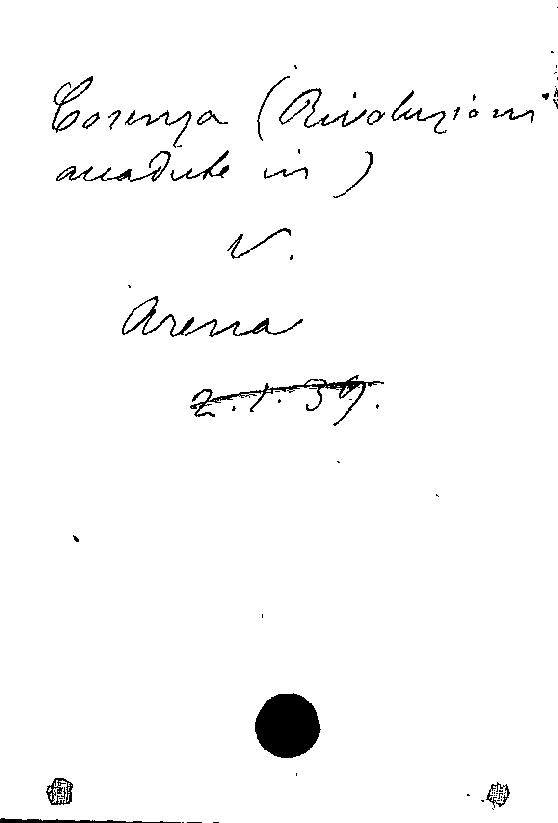 Cosenza (Rivoluzioni
accadute in)
V.
Arena
2.1.39.